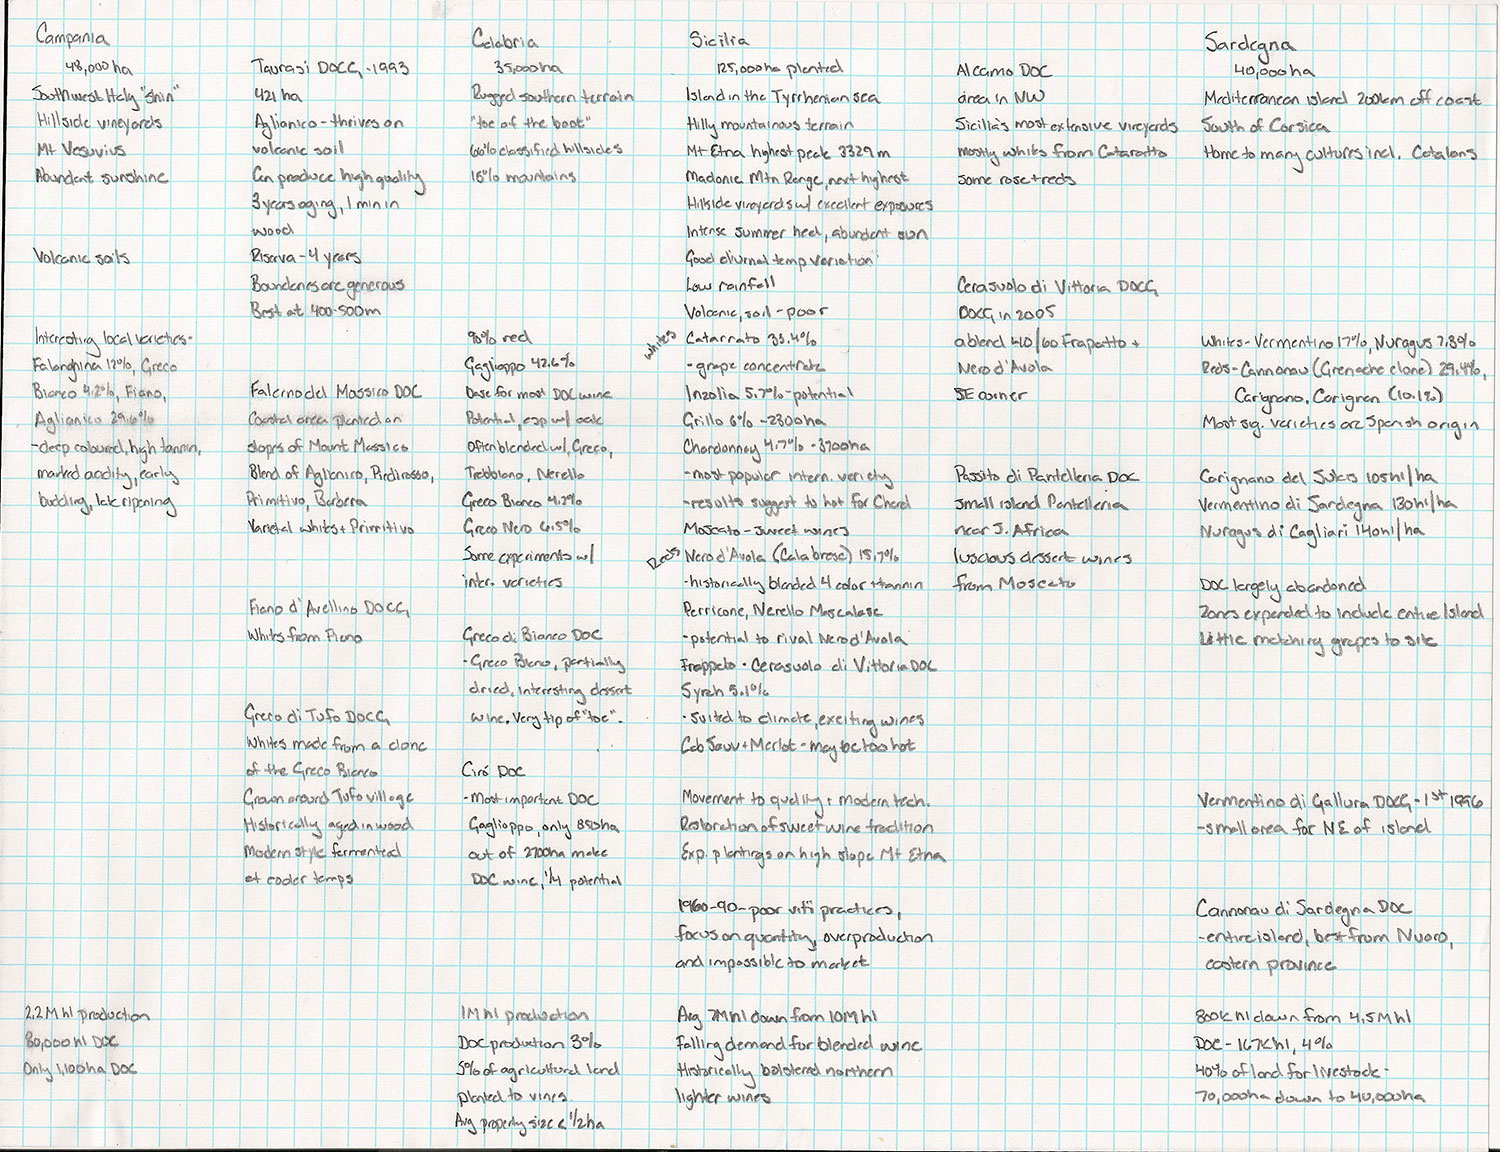 Campania
48,000 ha
Southwest Italy "shin"
Hillside vineyards
Mt Vesuvius
Abundant sunshine
Volcanic soils
Interesting local varieties-
Falanghina 12%, Greco
Bianco 4.2%, Fiano,
Aglianico 29.6%
-deep coloured, high tannin,
marked acidity, early
budding, late ripening
2.2M hl production
80,000 hl DOC
Only 1,100ha DOC
Taurasi DOCG - 1993
421 ha
Aglianico - thrives on
volcanic soil
Can produce high quality
3 years aging, 1 min in
wood
Riserva - 4 years
Boundaries are generous
Best at 400-500m
Falerno del Massico DOC
Coastal area planted on
slopes of Mount Massico
Blend of Aglianico, Piedirosso,
Primitivo, Barbera
Varietal whites + Primitivo
Fiano d'Avellino DOCG
Whites from Fiano
Greco di Tufo DOCG
Whites made from a clone
of the Greco Bianco
Grown around Tufo village
Historically aged in wood
Modern style fermented
at cooler temps
Calabria
35,000ha
Rugged southern terrain
"toe of the boot"
60% classified hillsides
15% mountains
90% red
Gaglioppo 42.6%
Base for most DOC wine
Potential, esp w/ oak
Often blended w/, Greco,
Trebbiano, Nerello
Greco Bianco 4.2%
Greco Nero 6.5%
Some experiments w/
inter. varieties
Greco di Bianco DOC
- Greco Biano, partially
dried, interesting dessert
wine. Very tip of "toe".
Ciró DOC
-Most important DOC
Gaglioppo, only 850ha
out of 2700ha make
DOC wine, 1/4 potential
1M hl production
DOC production 3%
5% of agricultural land
planted to vines
Avg property size < 1/2 ha
Sicilia
125,000ha planted
Island in the Tyrrhenian sea
Hilly mountainous terrain
Mt Etna highest peak 3329m
Madonie Mtn Range, next highest
Hillside vineyards w/ excellent exposures
Intense summer heat, abundant sun
Good diurnal temp variation
Low rainfall
Volcanic, soil - poor
Whites
Catarrato 35.4%
- grape concentrate
Inzolia 5.7% - potential
Grillo 6% - 2300ha
Chardonnay 4.7% - 3700ha
-most popular intern. variety
-results suggest to hot for Chard
Moscato - sweet wines
Reds
Nero d'Avola (Calabrese) 15.7%
-historically blended 4 color + tannin
Perricone, Nerello Mascalase
-potential to rival Nero d'Avola
Frappato - Cerasuolo di Vittoria DOC
Syrah 5.1%
- suited to climate, exciting wines
Cab Sauv + Merlot - may be too hot
Movement to quality + modern tech.
Restoration of sweet wine tradition
Exp. plantings on high slope Mt Etna
1960-90 - poor viti practices,
focus on quantity, overproduction
and impossible to market
Avg 7M hl down from 10M hl
Falling demand for blended wine
Historically bolstered northern
lighter wines
Alcamo DOC
area in NW
Sicilia's most extensive vineyards
mostly whites from Cataratto
some rose + reds
Cerasuolo di Vittoria DOCG
DOCG in 2005
a blend 40/60 Frapatto +
Nero d'Avola
SE corner
Passito di Pantelleria DOC
small island Pantelleria
near S. Africa
luscious dessert wines
from Moscato
Sardegna
40,000ha
Mediterranean island 200km off coast
South of Corsica
Home to many cultures incl. Catalans
Whites - Vermentino 17%, Nuragus 7.8%
Reds - Cannonau (Grenache clone) 29.4%,
Carignano, Carignan (10.1%)
Most sig. varieties are Spanish origin
Carignano del Sulcis 105hl/ha
Vermentino di Sardegna 130hl/ha
Nuragus di Cagliari 140hl/ha
DOC largely abandoned
Zones expanded to include entire island
Little matching grapes to site
Vermentino di Gallura DOCG - 1st 1996
-small area far NE of island
Cannonau di Sardegna DOC
-entire island, best from Nuoro,
eastern province
800K hl down from 4.5M hl
DOC - 167K hl, 4%
40% of land for livestock -
70,000ha down to 40,000ha